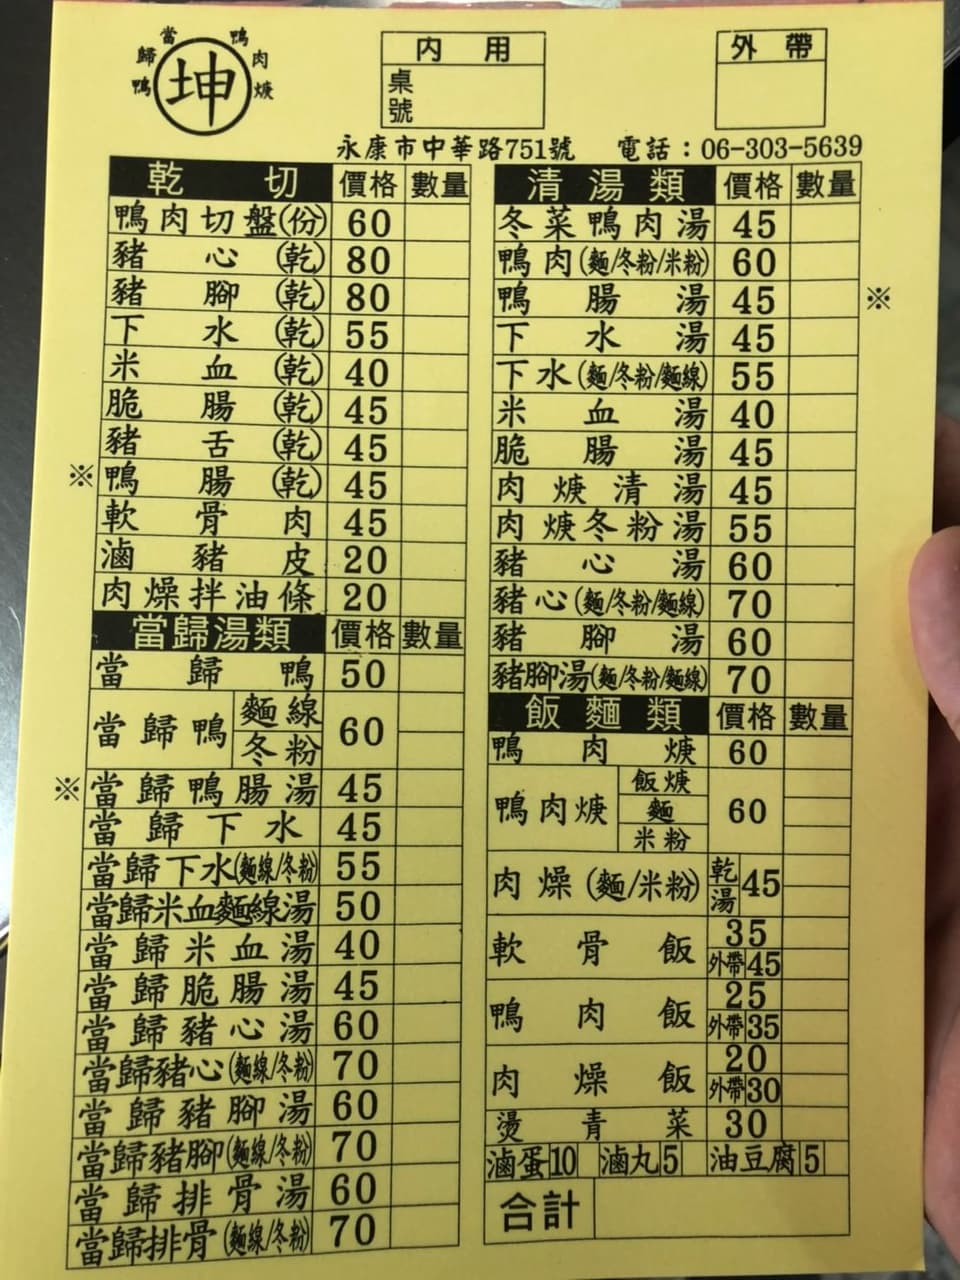 當歸鴨 坤 鴨肉焿
內用
桌號
外帶
永康市中華路751號 電話：06-303-5639
乾切 價格 數量
鴨肉切盤(份) 60
豬心(乾) 80
豬腳(乾) 80
下水(乾) 55
米血(乾) 40
脆腸(乾) 45
豬舌(乾) 45
※鴨腸(乾) 45
軟骨肉 45
滷豬皮 20
肉燥拌油條 20
當歸湯類 價格 數量
當歸鴨 50
當歸鴨 麵線 冬粉 60
※當歸鴨腸湯 45
當歸下水 45
當歸下水(麵線/冬粉) 55
當歸米血麵線湯 50
當歸米血湯 40
當歸脆腸湯 45
當歸豬心湯 60
當歸豬心(麵線/冬粉) 70
當歸豬腳湯 60
當歸豬腳(麵線/冬粉) 70
當歸排骨湯 60
當歸排骨(麵線/冬粉) 70
清湯類 價格 數量
冬菜鴨肉湯 45
鴨肉(麵/冬粉/米粉) 60
鴨腸湯 45 ※
下水湯 45
下水(麵/冬粉/麵線) 55
米血湯 40
脆腸湯 45
肉焿清湯 45
肉焿冬粉湯 55
豬心湯 60
豬心(麵/冬粉/麵線) 70
豬腳湯 60
豬腳湯(麵/冬粉/麵線) 70
飯麵類 價格 數量
鴨肉焿 60
鴨肉焿 飯焿 麵 米粉 60
肉燥(麵/米粉) 乾湯 45
軟骨飯 35 外帶45
鴨肉飯 25 外帶35
肉燥飯 20 外帶30
燙青菜 30
滷蛋10 滷丸5 油豆腐5
合計